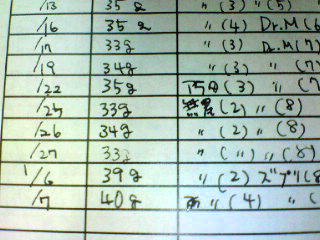 /13 35g 〃(3) 〃(5)
/16 35g 〃(4) Dr.M(6
/17 33g 〃(3) Dr.M(7)
/19 34g 〃(3) 〃(7)
/22 35g (3) 〃(7
/25 33g (2) 〃(8)
/26 34g 〃(2) 〃(8)
/27 33g 〃(〃) 〃(8)
1/6 39g 〃(2) ズプリ(8
/7 40g 〃(4) 〃(